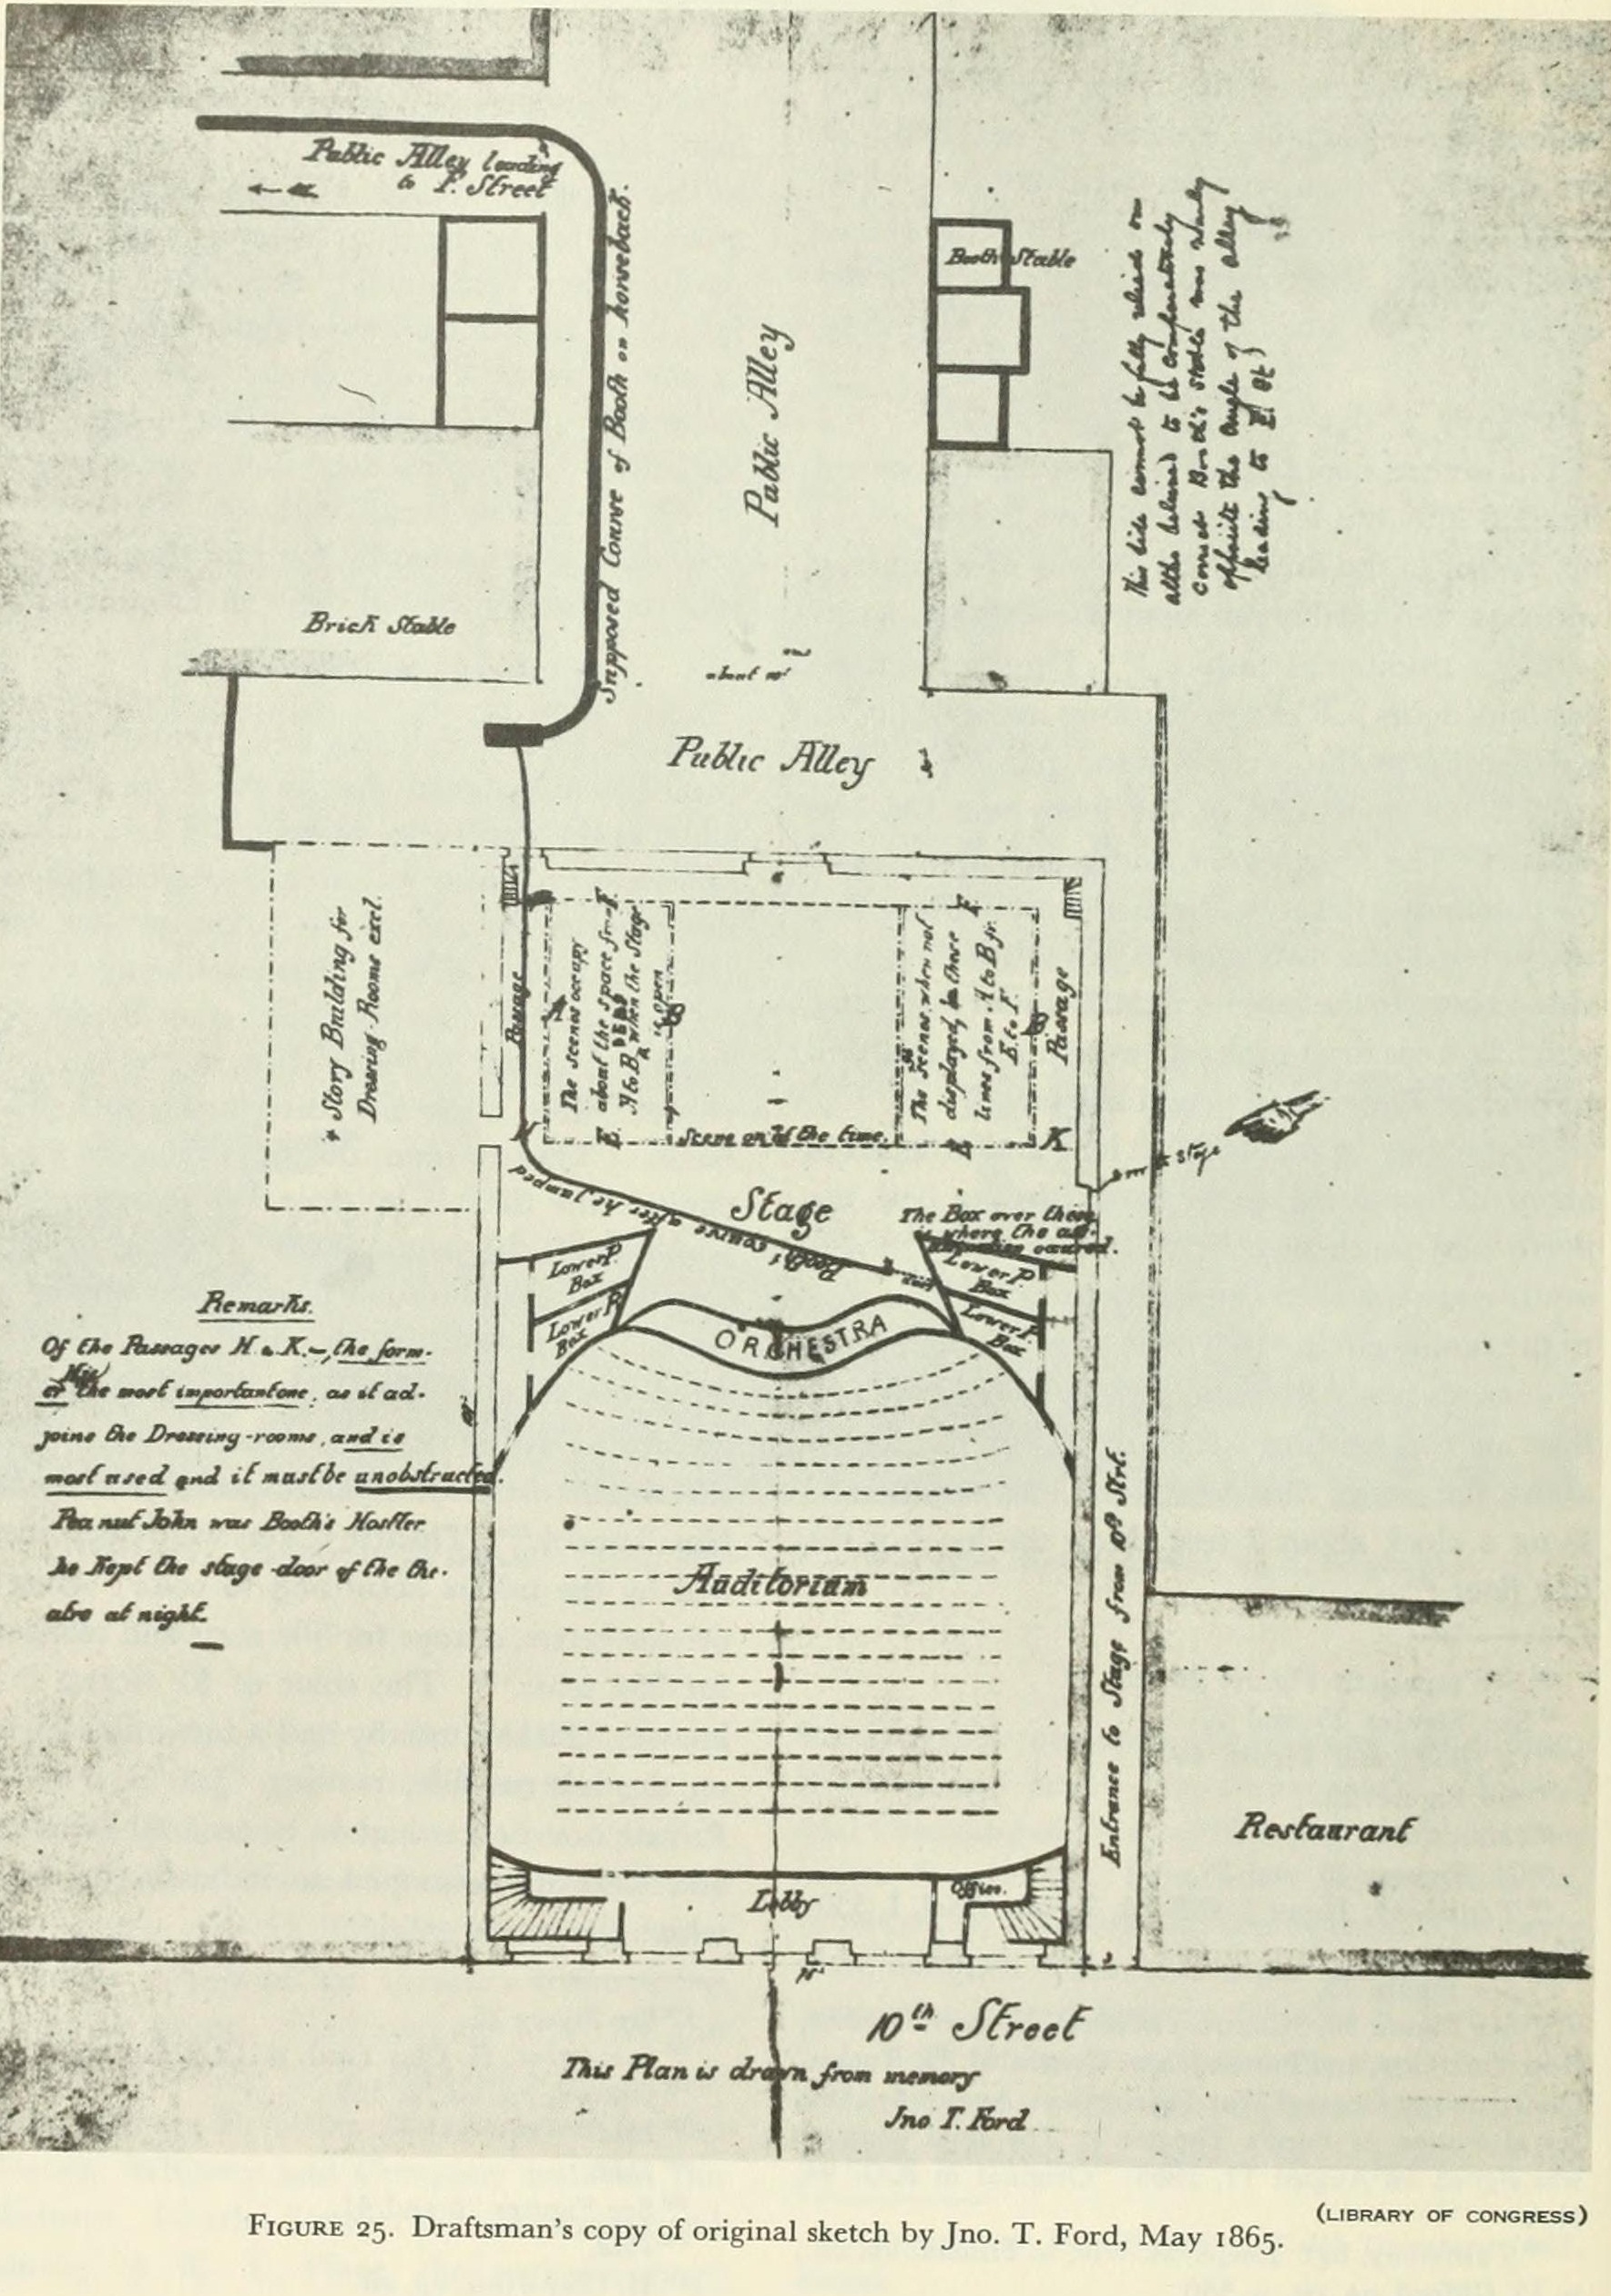 Public Alley leading
to F. Street
Supposed Course of Booth on horseback.
Public Alley
Booth Stable
This side cannot be fully relied on
altho believed to be comparatively
correct Booth's stable was nearly
opposite the Angle of the alley
leading to F. St)
Brick Stable
about
Public Alley
Story Building for
Dressing-Rooms excl.
Passage
The scenes occupy
about the space from
A to B when the Stage
is open
A
B
E
F
The scenes when not
displayed, in these
lines from A to B fr.
E to F.
E
F
B
Passage
H
K
Scene on at the time.
Stage
Booth's course after he jumped
The Box over these
is where the as-
occured.
stage
Lower P.
Box
Lower P.
Box
Lower P
Box
Lower P.
Box
ORCHESTRA
Remarks.
Of the Passages H & K.–, the form-
er the most important one, as it ad-
joins the Dressing-rooms, and is
most used and it must be unobstructed.
Peanut John was Booth's Hostler
he kept the stage-door of the the-
atre at night.
Auditorium
Entrance to Stage from 10th Strt.
Restaurant
Lobby
Office.
10th Street
This Plan is drawn from memory
Jno T. Ford
(LIBRARY OF CONGRESS)
FIGURE 25. Draftsman's copy of original sketch by Jno. T. Ford, May 1865.